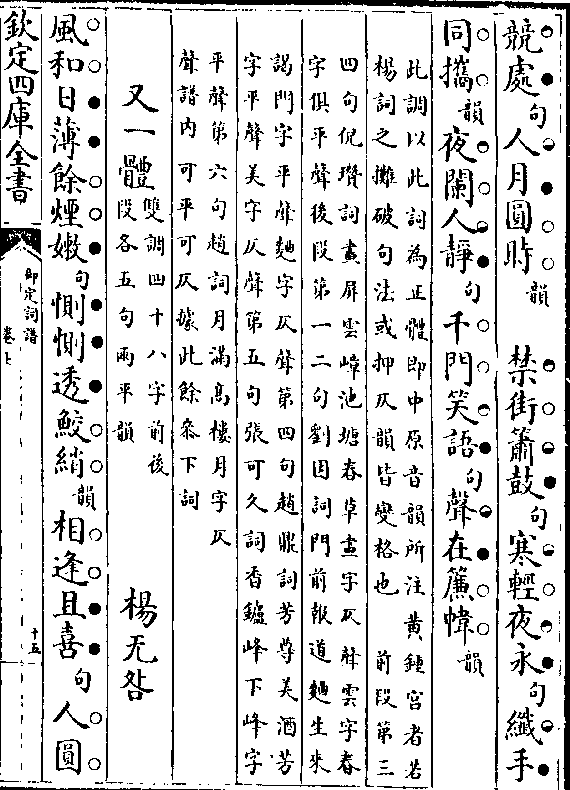 競處句人月圓時韻　禁街簫鼓句寒輕夜永句纖手
同攜韻夜闌人靜句千門笑語句聲在簾幃韻
此調以此詞為正體即中原音韻所注黃鍾宮者若
楊詞之攤破句法或押仄韻皆變格也　前段第三
四句倪瓚詞畫屏雲嶂池塘春草畫字仄聲雲字春
字俱平聲後段第一二句劉因詞門前報道麯生來
謁門字平聲麯字仄聲第四句趙鼎詞芳尊美酒芳
字平聲美字仄聲第五句張可久詞香鑪峰下峰字
平聲第六句趙詞月滿高樓月字仄
聲譜內可平可仄據此餘參下詞
又一體雙調四十八字前後
段各五句兩平韻　楊无咎
風和日薄餘煙嫩句惻惻透鮫綃韻相逢且喜句人圓
欽定四庫全書
御定詞譜
卷七
十五